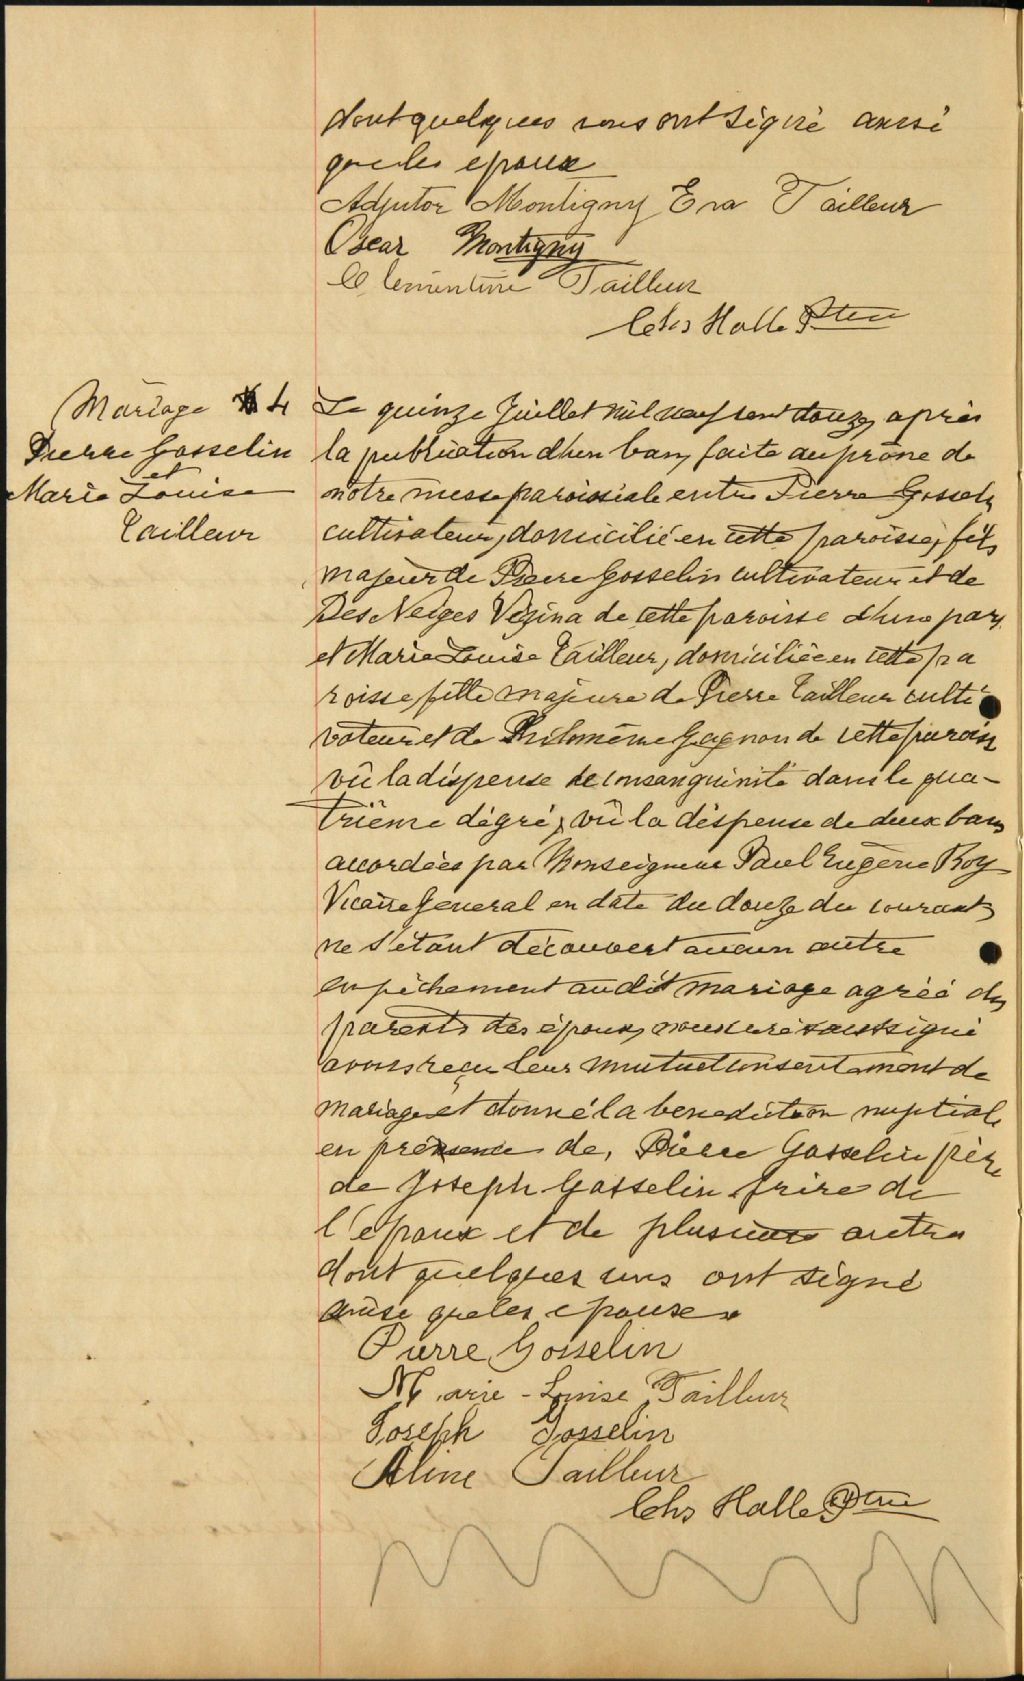 dont quelques uns ont signé ainsi
que les epoux
Adjutor Montigny Eva Tailleur
Oscar Montigny
Clementine Tailleur
Chs Halle Ptre
Mariage 4
Pierre Gosselin
et
Marie Louise
Tailleur
Le quinze Juillet mil neuf cent douze, après
la publication d'un ban, faite au prône de
notre messe paroissiale entre Pierre Gosselin
cultivateur, domicilié en cette paroisse, fils
majeur de Pierre Gosselin cultivateur et de
Des Neiges Vézina de cette paroisse d'une part
et Marie Louise Tailleur, domiciliée en cette pa
roisse, fille majeure de Pierre Tailleur culti
vateur et de Philomène Gagnon de cette paroisse
vû la dispense de consanguinité dans le qua-
trième dégré, vû la dispense de deux bans
accordées par Monseigneur Paul Eugène Roy
Vicaire General en date du douze du courant,
ne s'étant découvert aucun autre
empêchement au dit mariage agréé des
parents des époux, nous curé soussigné
avons reçu leur mutuel consentement de
mariage et donné la benediction nuptiale
en présence de, Pierre Gosselin père
de Joseph Gosselin frère de
l'epoux et de plusieurs autres
dont quelques uns ont signé
ainsi que les epoux.
Pierre Gosselin
Marie-Louise Tailleur
Joseph Gosselin
Aline Tailleur
Chs Halle Ptre